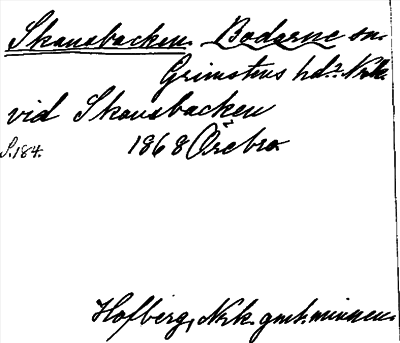 Skansbacken. Bodarne sn.
Grimstens hd. Nrk.
vid Skansbacken
S. 184. 1868 Örebro
Hofberg, Nrk. gml. minnen.